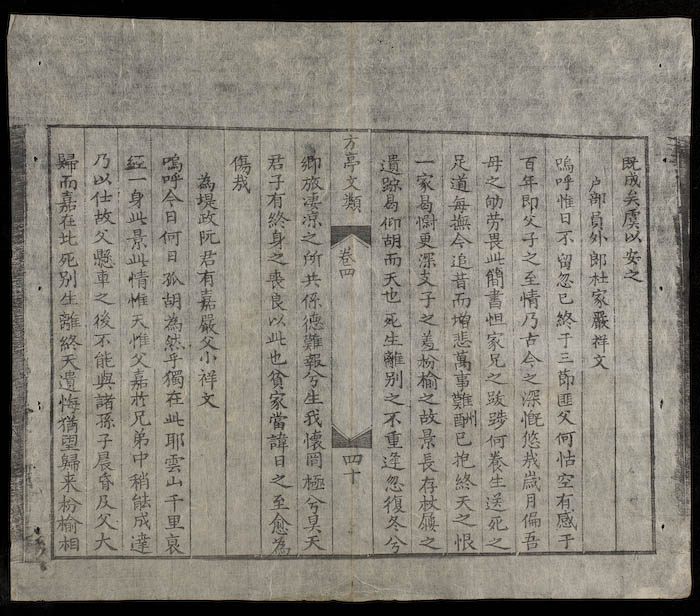 既成矣虞以安之
户部員外郎杜家嚴祥文
嗚呼惟日不留忽已終于三節匪父何怙空有感于
百年即父子之至情乃古今之深慨悠哉歲月偏吾
母之劬劳畏此簡書怛家兄之跋踄何養生送死之
足道每撫今追昔而增悲萬事難酬已抱終天之恨
一家曷慰更深支子之羞枌榆之故景長存杖屨之
遺踪曷仰胡而天也死生離别之不重逢忽復冬兮
方亭文類 卷四 四十
鄉旅凄凉之所共係德難報兮生我懷罔極兮昊天
君子有終身之喪良以此也貧家當諱日之至愈為
傷哉
為堤政阮君有嘉嚴父小祥文
嗚呼今日何日孤胡為然乎獨在此耶雲山千里哀
經一身此景此情惟天惟父嘉於兄弟中稍能成達
乃以仕故父懸車之後不能與諸孫子晨昏及父大
歸而嘉在此死别生離終天遺悔猶望歸来枌榆相